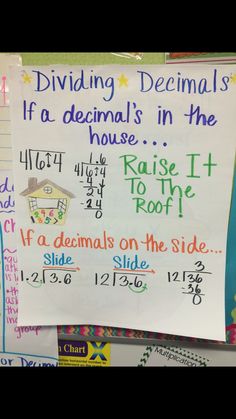 Dividing Decimals
If a decimal's in the
house...
4 6.4
1.6
4 6.4
- 4
24
- 24
0
Raise It
To The
Roof!
If a decimals on the side...
Slide Slide
1.2 3.6 12 3.6
3
12 36
- 36
0
Chart
Multiplication
or Decimal